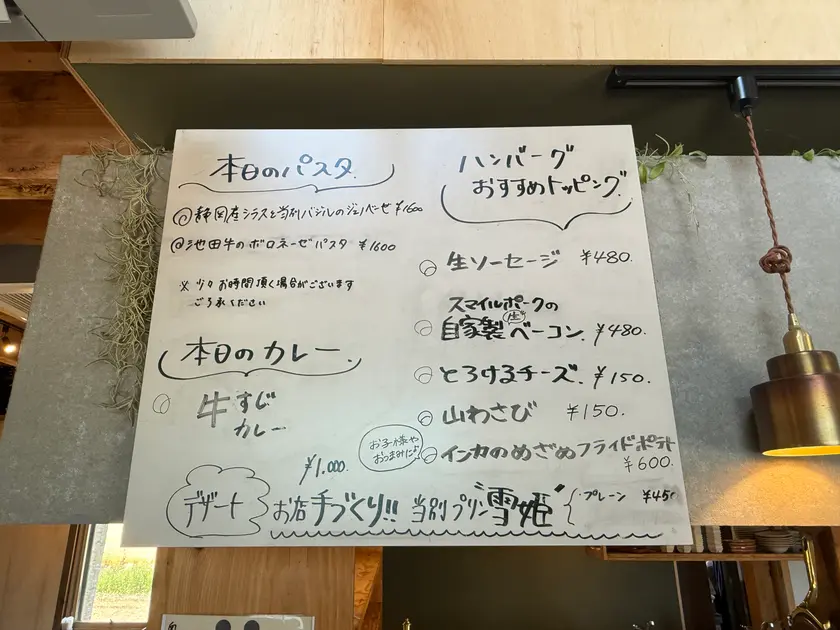 本日のパスタ
静岡産シラスと当別バジルのジェノベーゼ ¥1600
池田牛のボロネーゼパスタ ¥1600
※ 少々お時間頂く場合がございます
ご了承ください
本日のカレー
牛すじ
カレー
¥1.000.
ハンバーグ
おすすめトッピング
生ソーセージ ¥480.
スマイルポークの
自家製生ベーコン. ¥480.
とろけるチーズ. ¥150.
山わさび ¥150.
お子様や
おつまみに♪
インカのめざめフライドポテト
¥600.
デザート お店手づくり!! 当別プリン"雪姫" プレーン ¥45